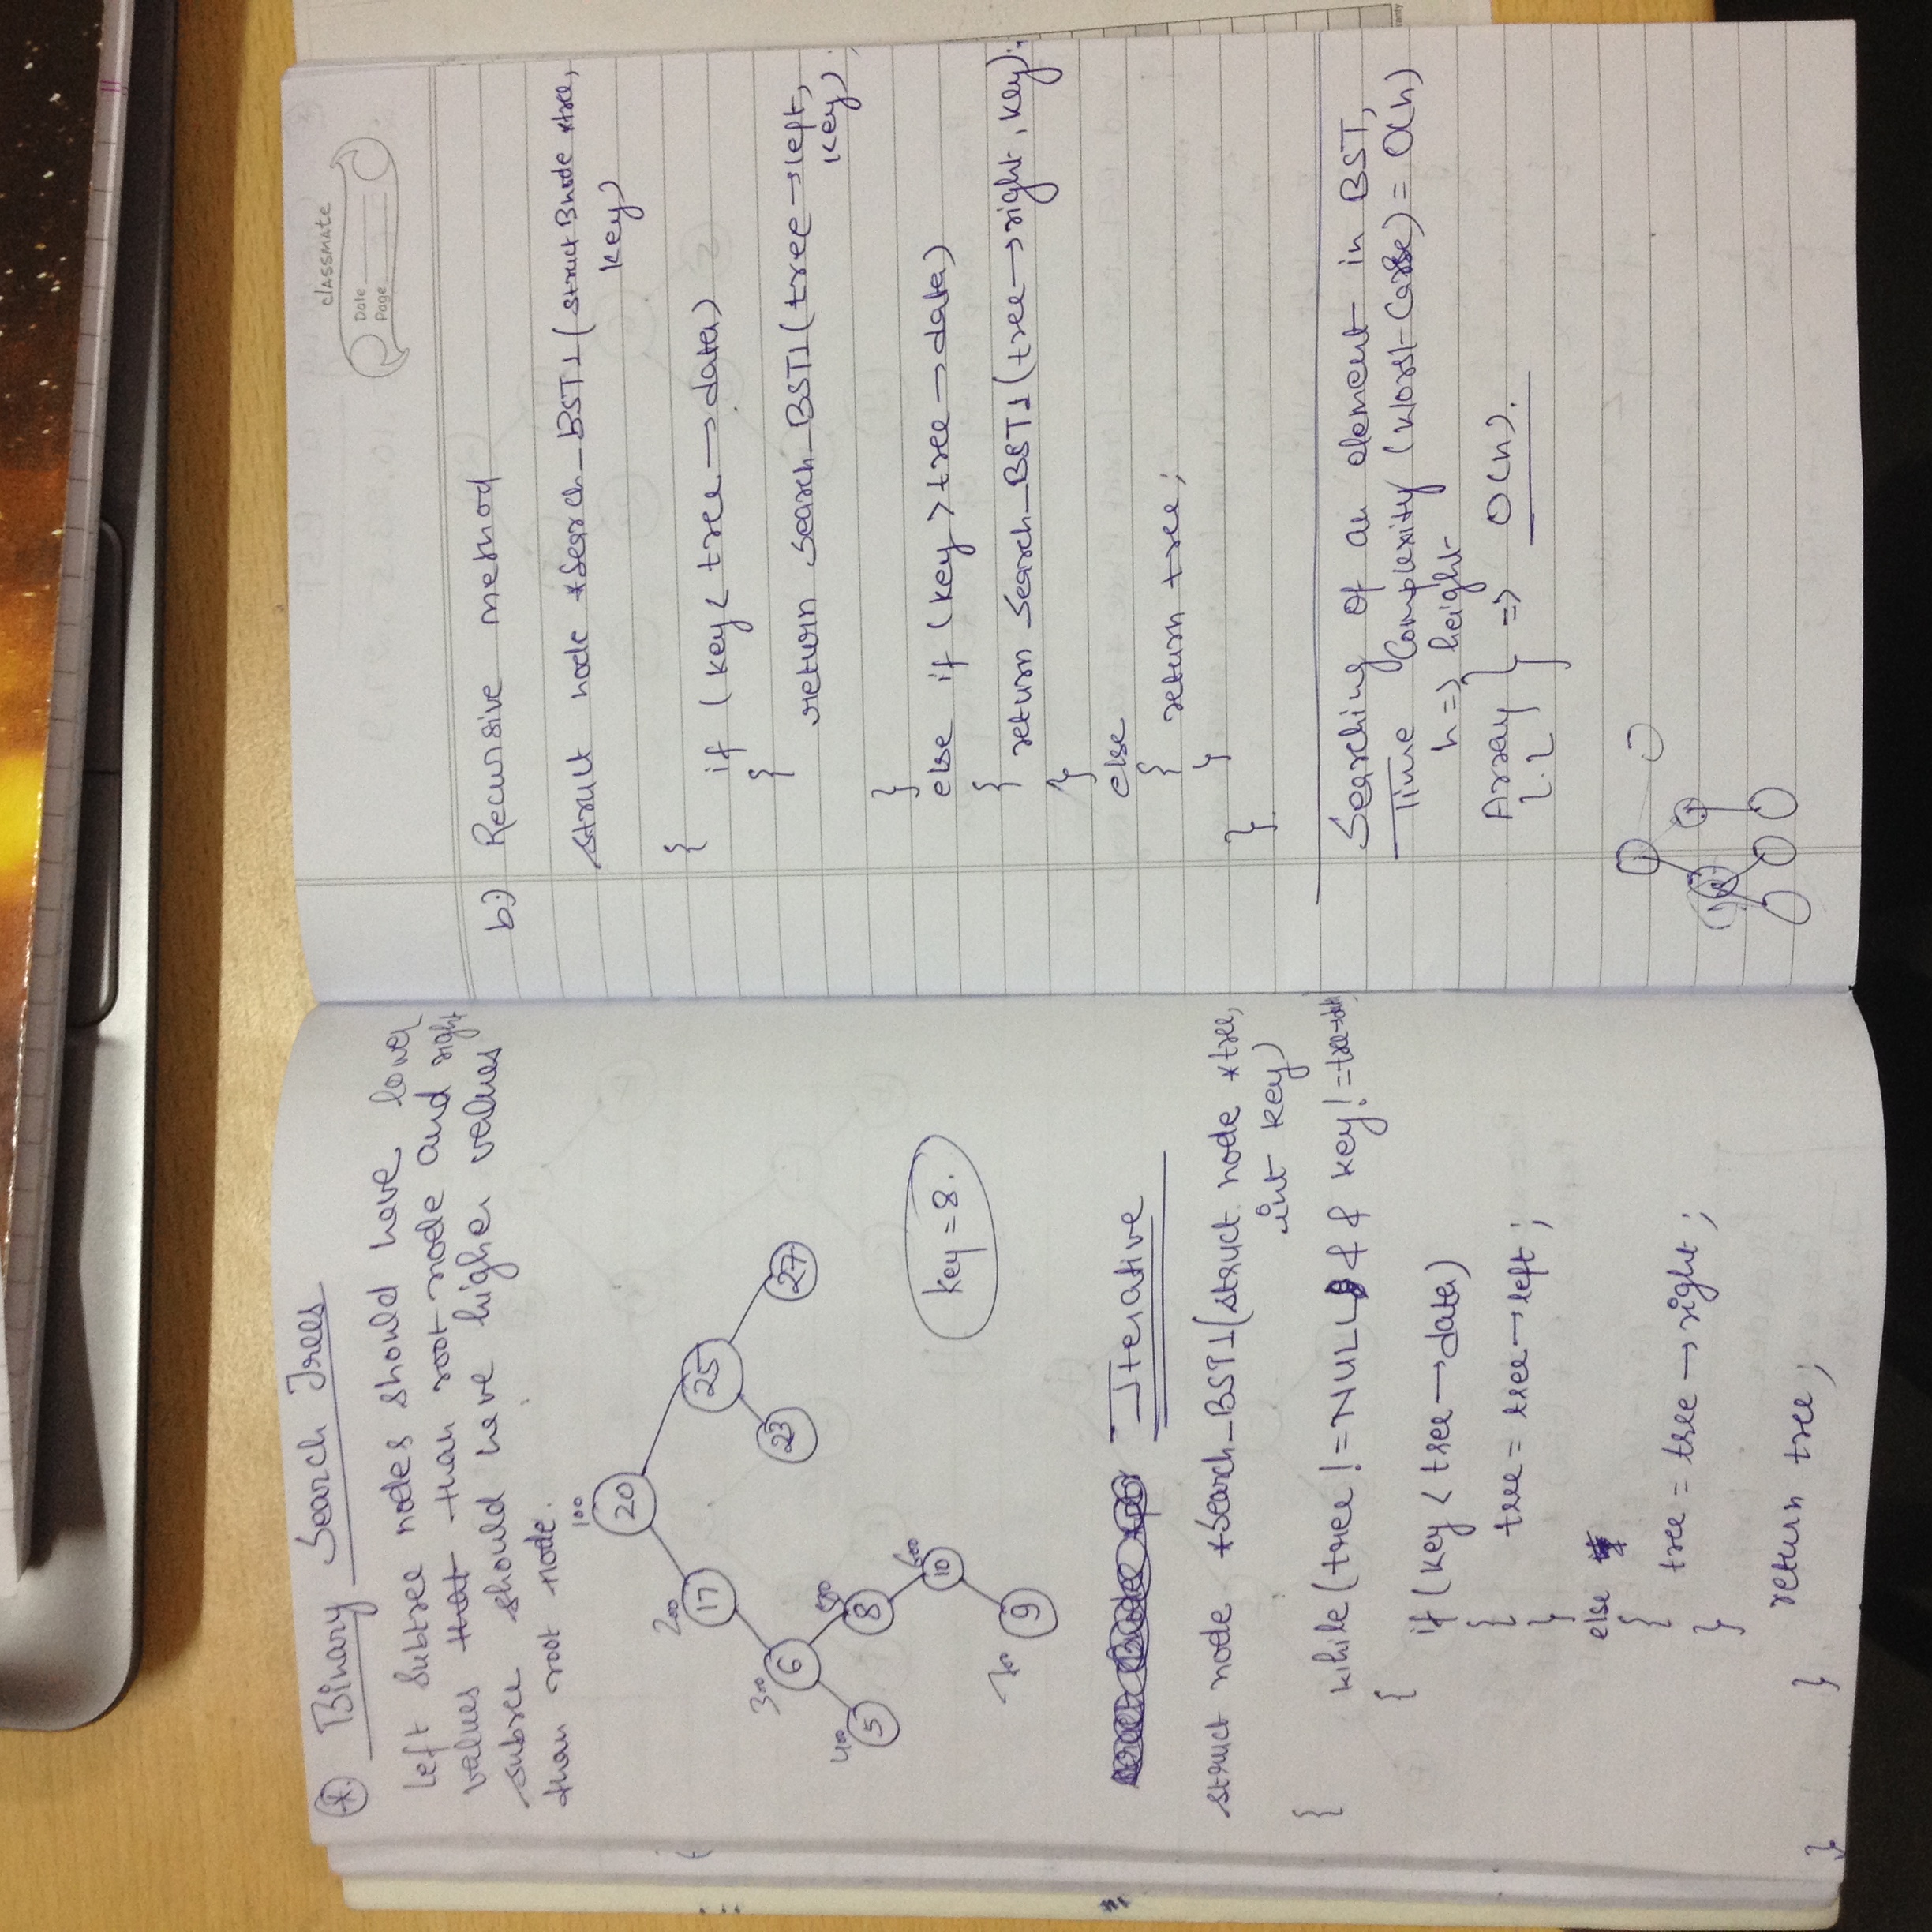 *. Binary Search Trees
left subtree nodes should have lower
values that than root node and right
subree should have higher values
than root node.
100
20
200
17
25
300
6
23
27
400
5
8
500
10
600
9
700
key = 8.
Iterative
struct node *Search_BST1(struct node *tree,
int key)
{
while (tree != NULL && key != tree→data)
{
if (key < tree→data)
{
tree = tree→left;
}
else
{
tree = tree→right;
}
}
return tree;
}
classmate
Date
Page
b) Recursive method
struct node *Search_BST1(struct Bnode *tree,
key)
{
if (key < tree→data)
{
return Search_BST1(tree→left,
key)
}
else if (key > tree→data)
{
return Search_BST1(tree→right, key);
}
else
{
return tree;
}
}
Searching of an element in BST,
Time Complexity (Worst Case) = O(h)
h => height
Array
L.L } => O(n).